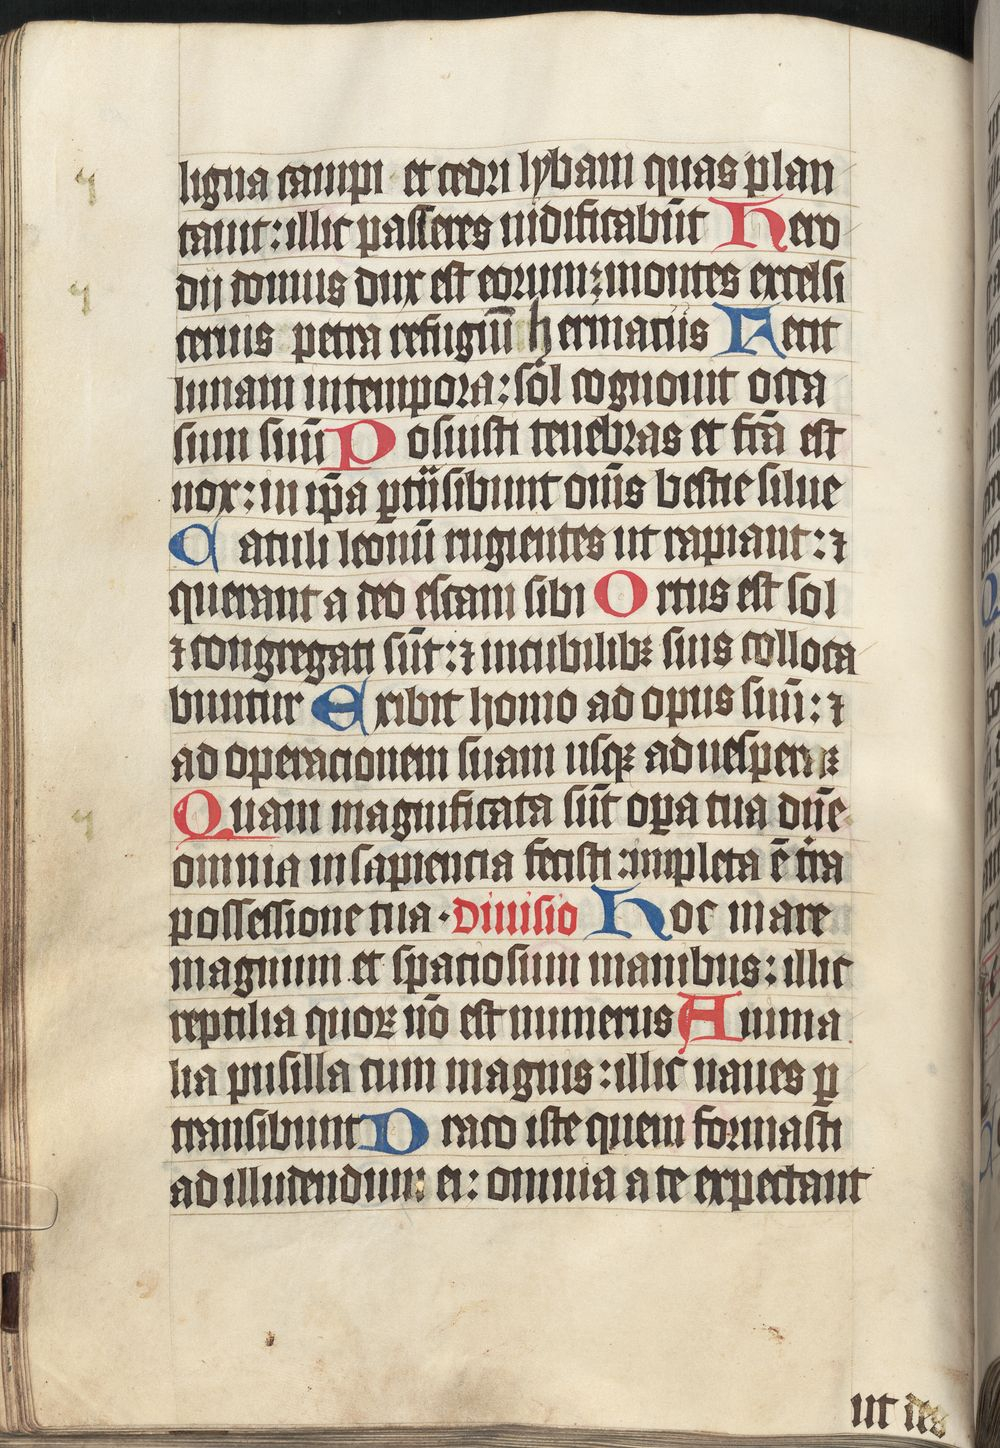 ligna campi et cedri lybani quas plan
tauit: illic passeres nidificabūt Hero
dij domus dux est eorum: montes excelsi
ceruis petra refugiū hermaciis Fecit
lunam in tempora: sol cognouit occa
sum suū Posuisti tenebras et fc̄a est
nox: in ip̄a ꝑtrāsibunt om̄s bestie silue
Catuli leonū rugientes ut rapiant: ⁊
querant a deo escam sibi Ortus est sol
⁊ congregati sūt: ⁊ in cubilibꝫ suis colloca
buntur Exibit homo ad opus suū: ⁊
ad operacionem suam usqꝫ ad uesperaꝫ
Quam magnificata sūt oꝑa tua dn̄e
omnia in sapiencia fecisti: impleta ē tr̄a
possessione tua · Diuisio Hoc mare
magnum et spaciosum manibus: illic
reptilia quoꝝ nō est numerus Anima
lia pusilla cum magnis: illic naues ꝑ
transibunt Draco iste quem formasti
ad illudendum ei: omnia a te expectant
ut des